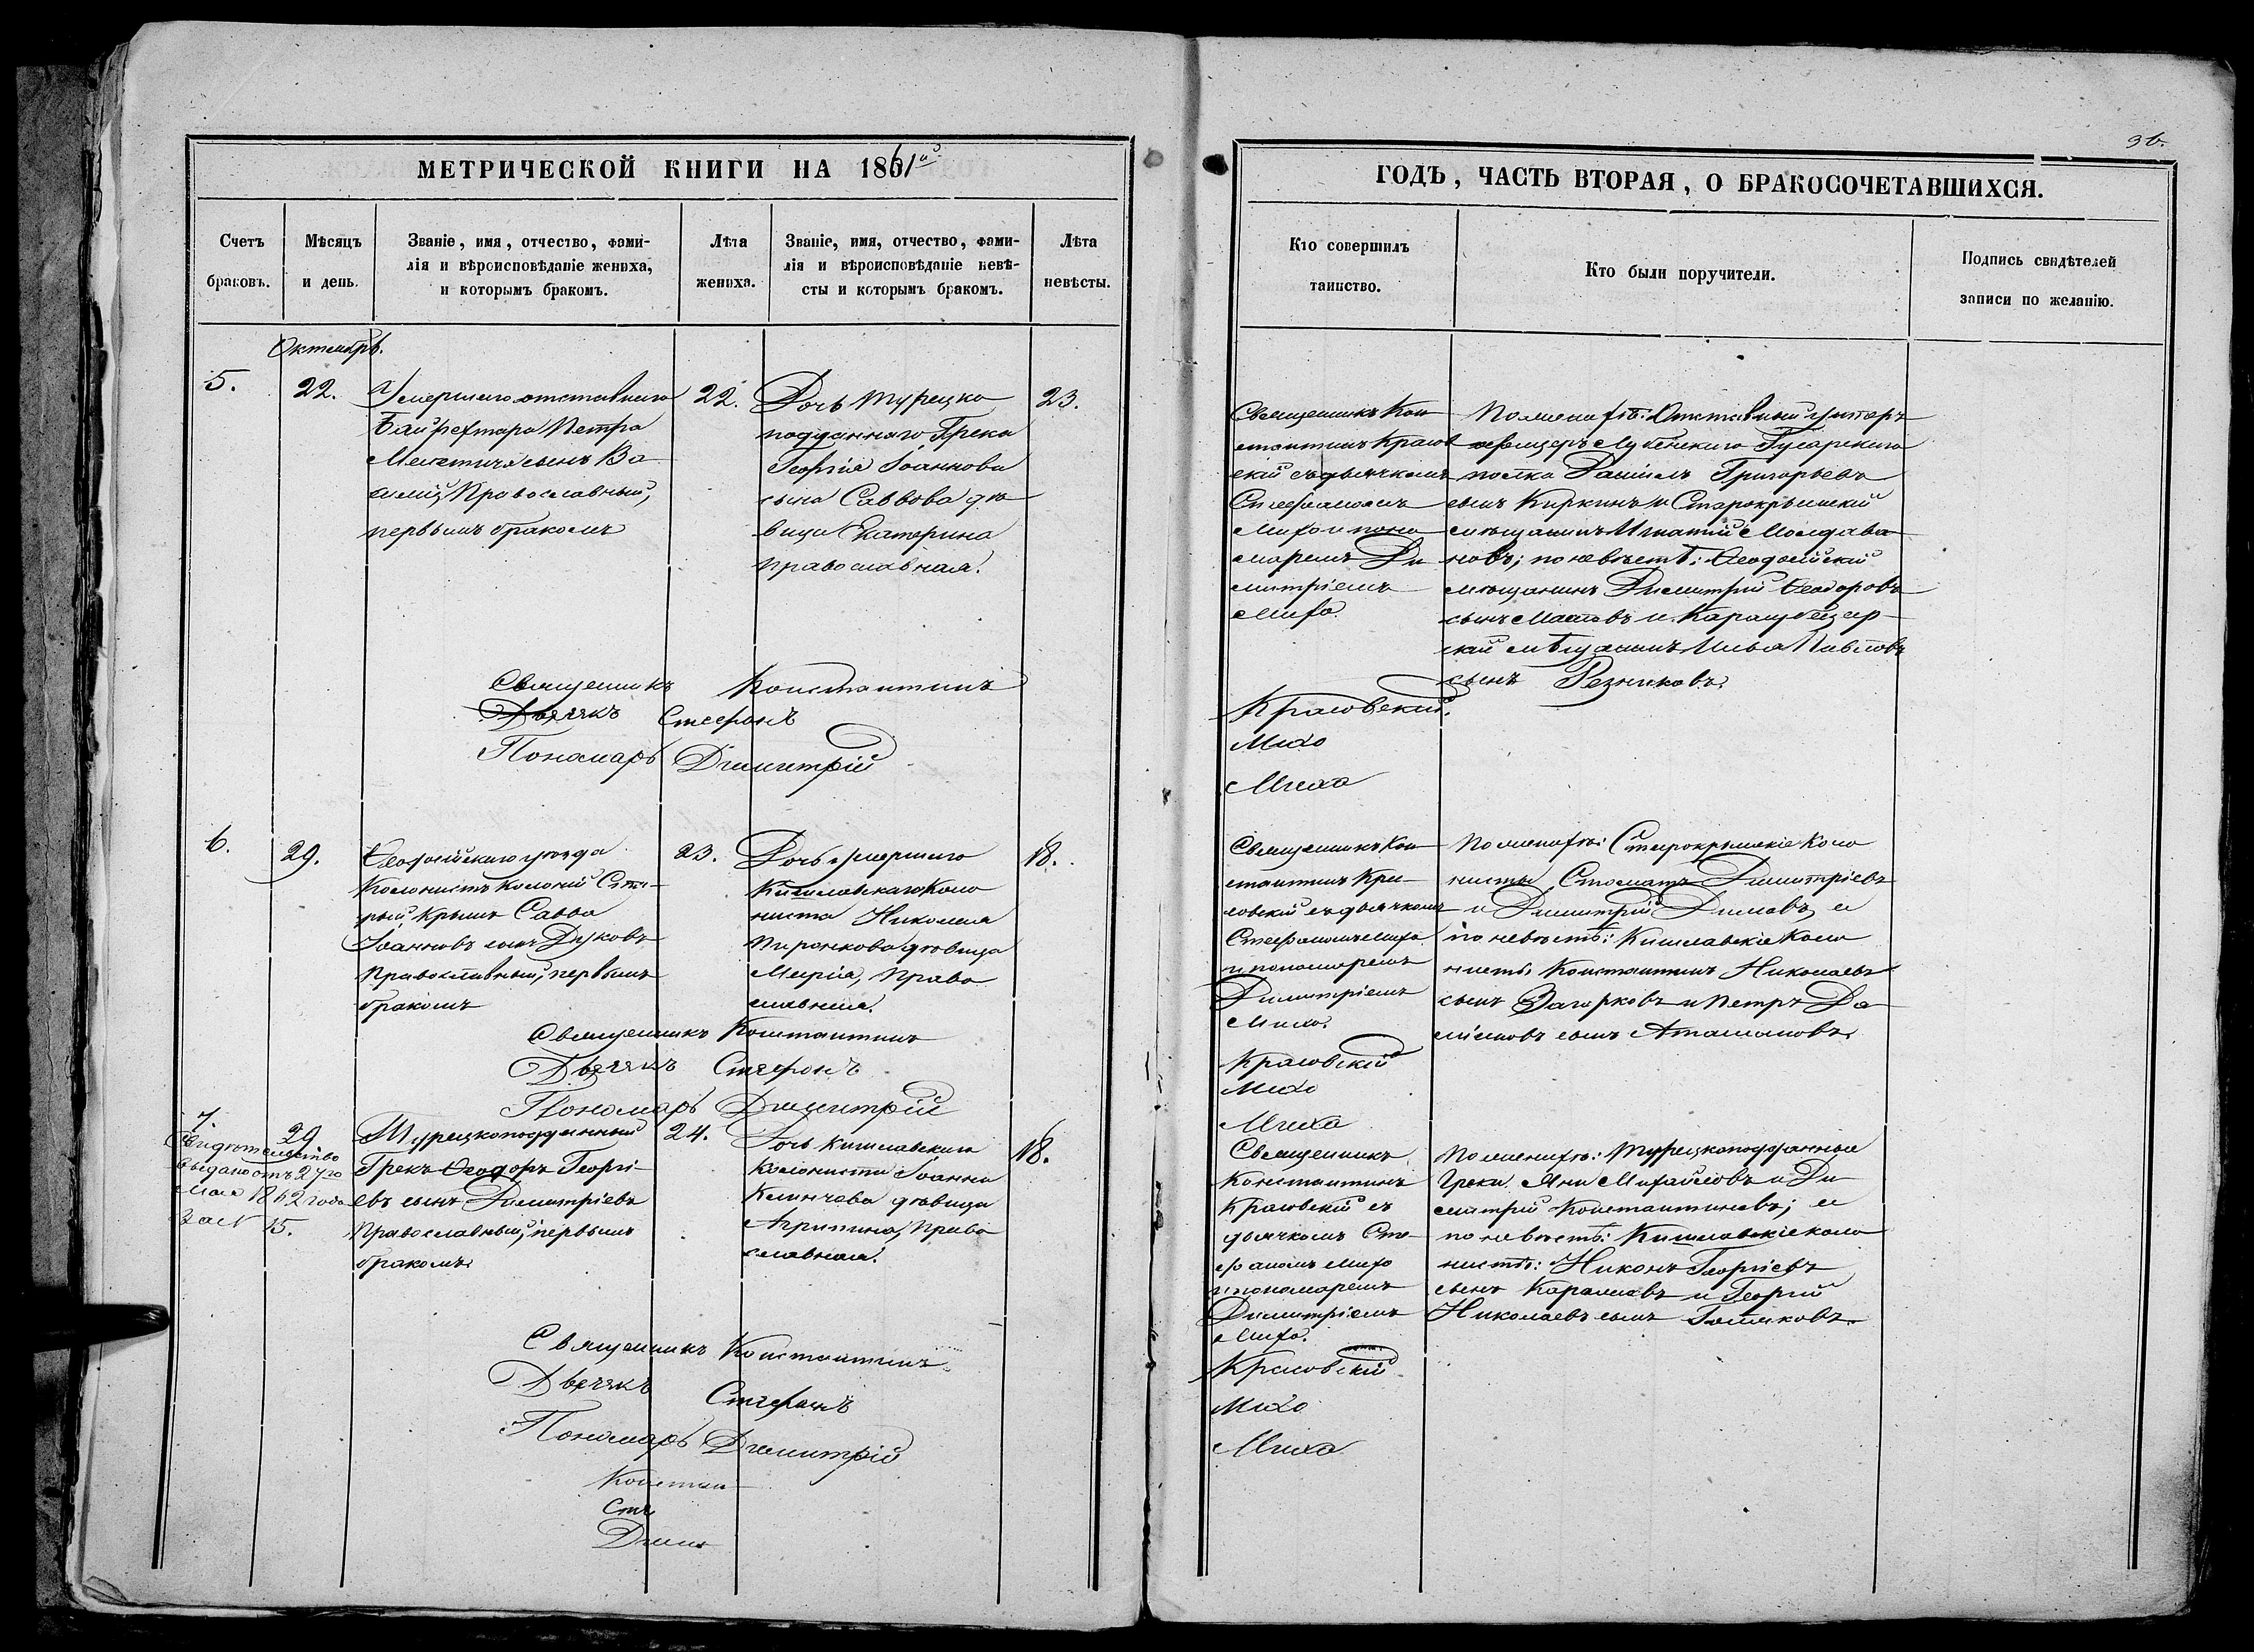 МЕТРИЧЕСКОЙ КНИГИ НА 1861й
Счетъ браковъ.
Мѣсяцъ и день.
Званіе, имя, отчество, фами-
лія и вѣроисповѣданіе жениха,
и которымъ бракомъ.
Лѣта жениха.
Званіе, имя, отчество, фами-
лія и вѣроисповѣданіе невѣ-
сты и которымъ бракомъ.
Лѣта невѣсты.
Октябрь.
5.
22.
Умершаго отставнаго
Петра
сынъ Ва-
силій, Православный,
первымъ бракомъ
22.
Дочь турецко
подданнаго Грека
Георгія Іоаннова
сына Саввова дѣ
вица Екатерина
православная.
23.
Священникъ Константинъ
Дьячекъ Стефанъ
Пономарь Димитрій
6.
29.
Ѳеодосійскаго уѣзда
Колонистъ колоніи Ста-
рый Крымъ Савва
Іоанновъ сынъ Дуковъ
Православный, первымъ
бракомъ
23.
Дочь умершаго
Кишлавскаго Коло
ниста Николая
Пиронкова дѣвица
Марія, Право
славная.
18.
Священникъ Константинъ
Дьячекъ Стефанъ
Пономарь Димитрій
7.
29.
Свидѣтельство
выдано отъ 27го
Мая 1862 года
За № 15.
Турецкоподданный
Грекъ Ѳеодоръ Георгі-
евъ сынъ Димитріевъ
Православный, первымъ
бракомъ
24.
Дочь Кишлавскаго
колониста Іоанна
Клинчева дѣвица
Агрипина, Право
славная.
18.
Священникъ Константинъ
Дьячекъ Стефанъ
Пономарь Димитрій
Констан
Сте
Дими
36.
ГОДЪ, ЧАСТЬ ВТОРАЯ, О БРАКОСОЧЕТАВШИХСЯ.
Кто совершилъ таинство.
Кто были поручители.
Подпись свидѣтелей
записи по желанію.
Священникъ Кон
стантинъ Красов
скій съ дьячкомъ
Стефаномъ
Михо и поно
маремъ Ди
митріемъ
Михо.
По женихѣ: Отставный унтеръ
офицеръ Лубенскаго Гусарскаго
полка Даніилъ Григорьевъ
сынъ Киркинъ и Старокрымскій
мѣщанинъ Игнатій Молдава
новъ; по невѣстѣ: Ѳеодосійскій
мѣщанинъ Димитрій Ѳеодоровъ
сынъ и Карасубазар-
скій мѣщанинъ Илья Павловъ
сынъ Резниковъ.
Красовскій.
Михо
Миха
Священникъ Кон
стантинъ Кра-
совскій съ дьячкомъ
Стефаномъ Михо
и пономаремъ
Димитріемъ
Михо.
По женихѣ: Старокрымскіе Коло
нисты Стаматъ Димитріевъ
и Димитрій Димовъ, и
по невѣстѣ: Кишлавскіе Коло
нисты Константинъ Николаевъ
сынъ Загорковъ и Петръ Да
міановъ сынъ Атамановъ.
Красовскій
Михо
Миха
Священникъ
Константинъ
Красовскій съ
дьячкомъ Сте-
фаномъ Михо
и пономаремъ
Димитріемъ
Михо.
По женихѣ: Турецкоподданные
Греки Яни Михайловъ и Ди
митрій Константиновъ; и
по невѣстѣ: Кишлавскіе коло
нисты: Никонъ Георгіевъ
сынъ и Георгій
Николаевъ сынъ
Красовскій
Михо
Миха